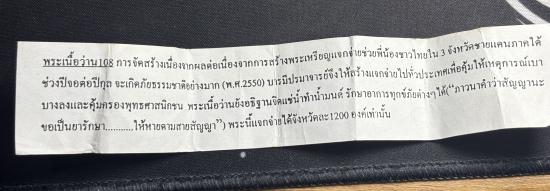 พระเนื้อว่าน108 การจัดสร้างเนื่องจากผลต่อเนื่องจากการสร้างพระเหรียญแจกจ่ายช่วยพี่น้องชาวไทยใน 3 จังหวัดชายแดนภาคใต้
ช่วงปีจอต่อปีกุล จะเกิดภัยธรรมชาติอย่างมาก (พ.ศ.2550) บารมีปรมาจารย์จึงให้สร้างแจกจ่ายไปทั่วประเทศเพื่อคุ้มให้เหตุการณ์เบา
บางลงและคุ้มครองพุทธศาสนิกชน พระเนื้อว่านยังอธิฐานจิตแช่น้ำทำน้ำมนต์ รักษาอาการทุกข์ภัยต่างๆได้("ภาวนาคำว่าสัญญานะ
ขอเป็นยารักษา...........ให้หายตามสายสัญญา") พระนี้แจกจ่ายได้จังหวัดละ1200 องค์เท่านั้น